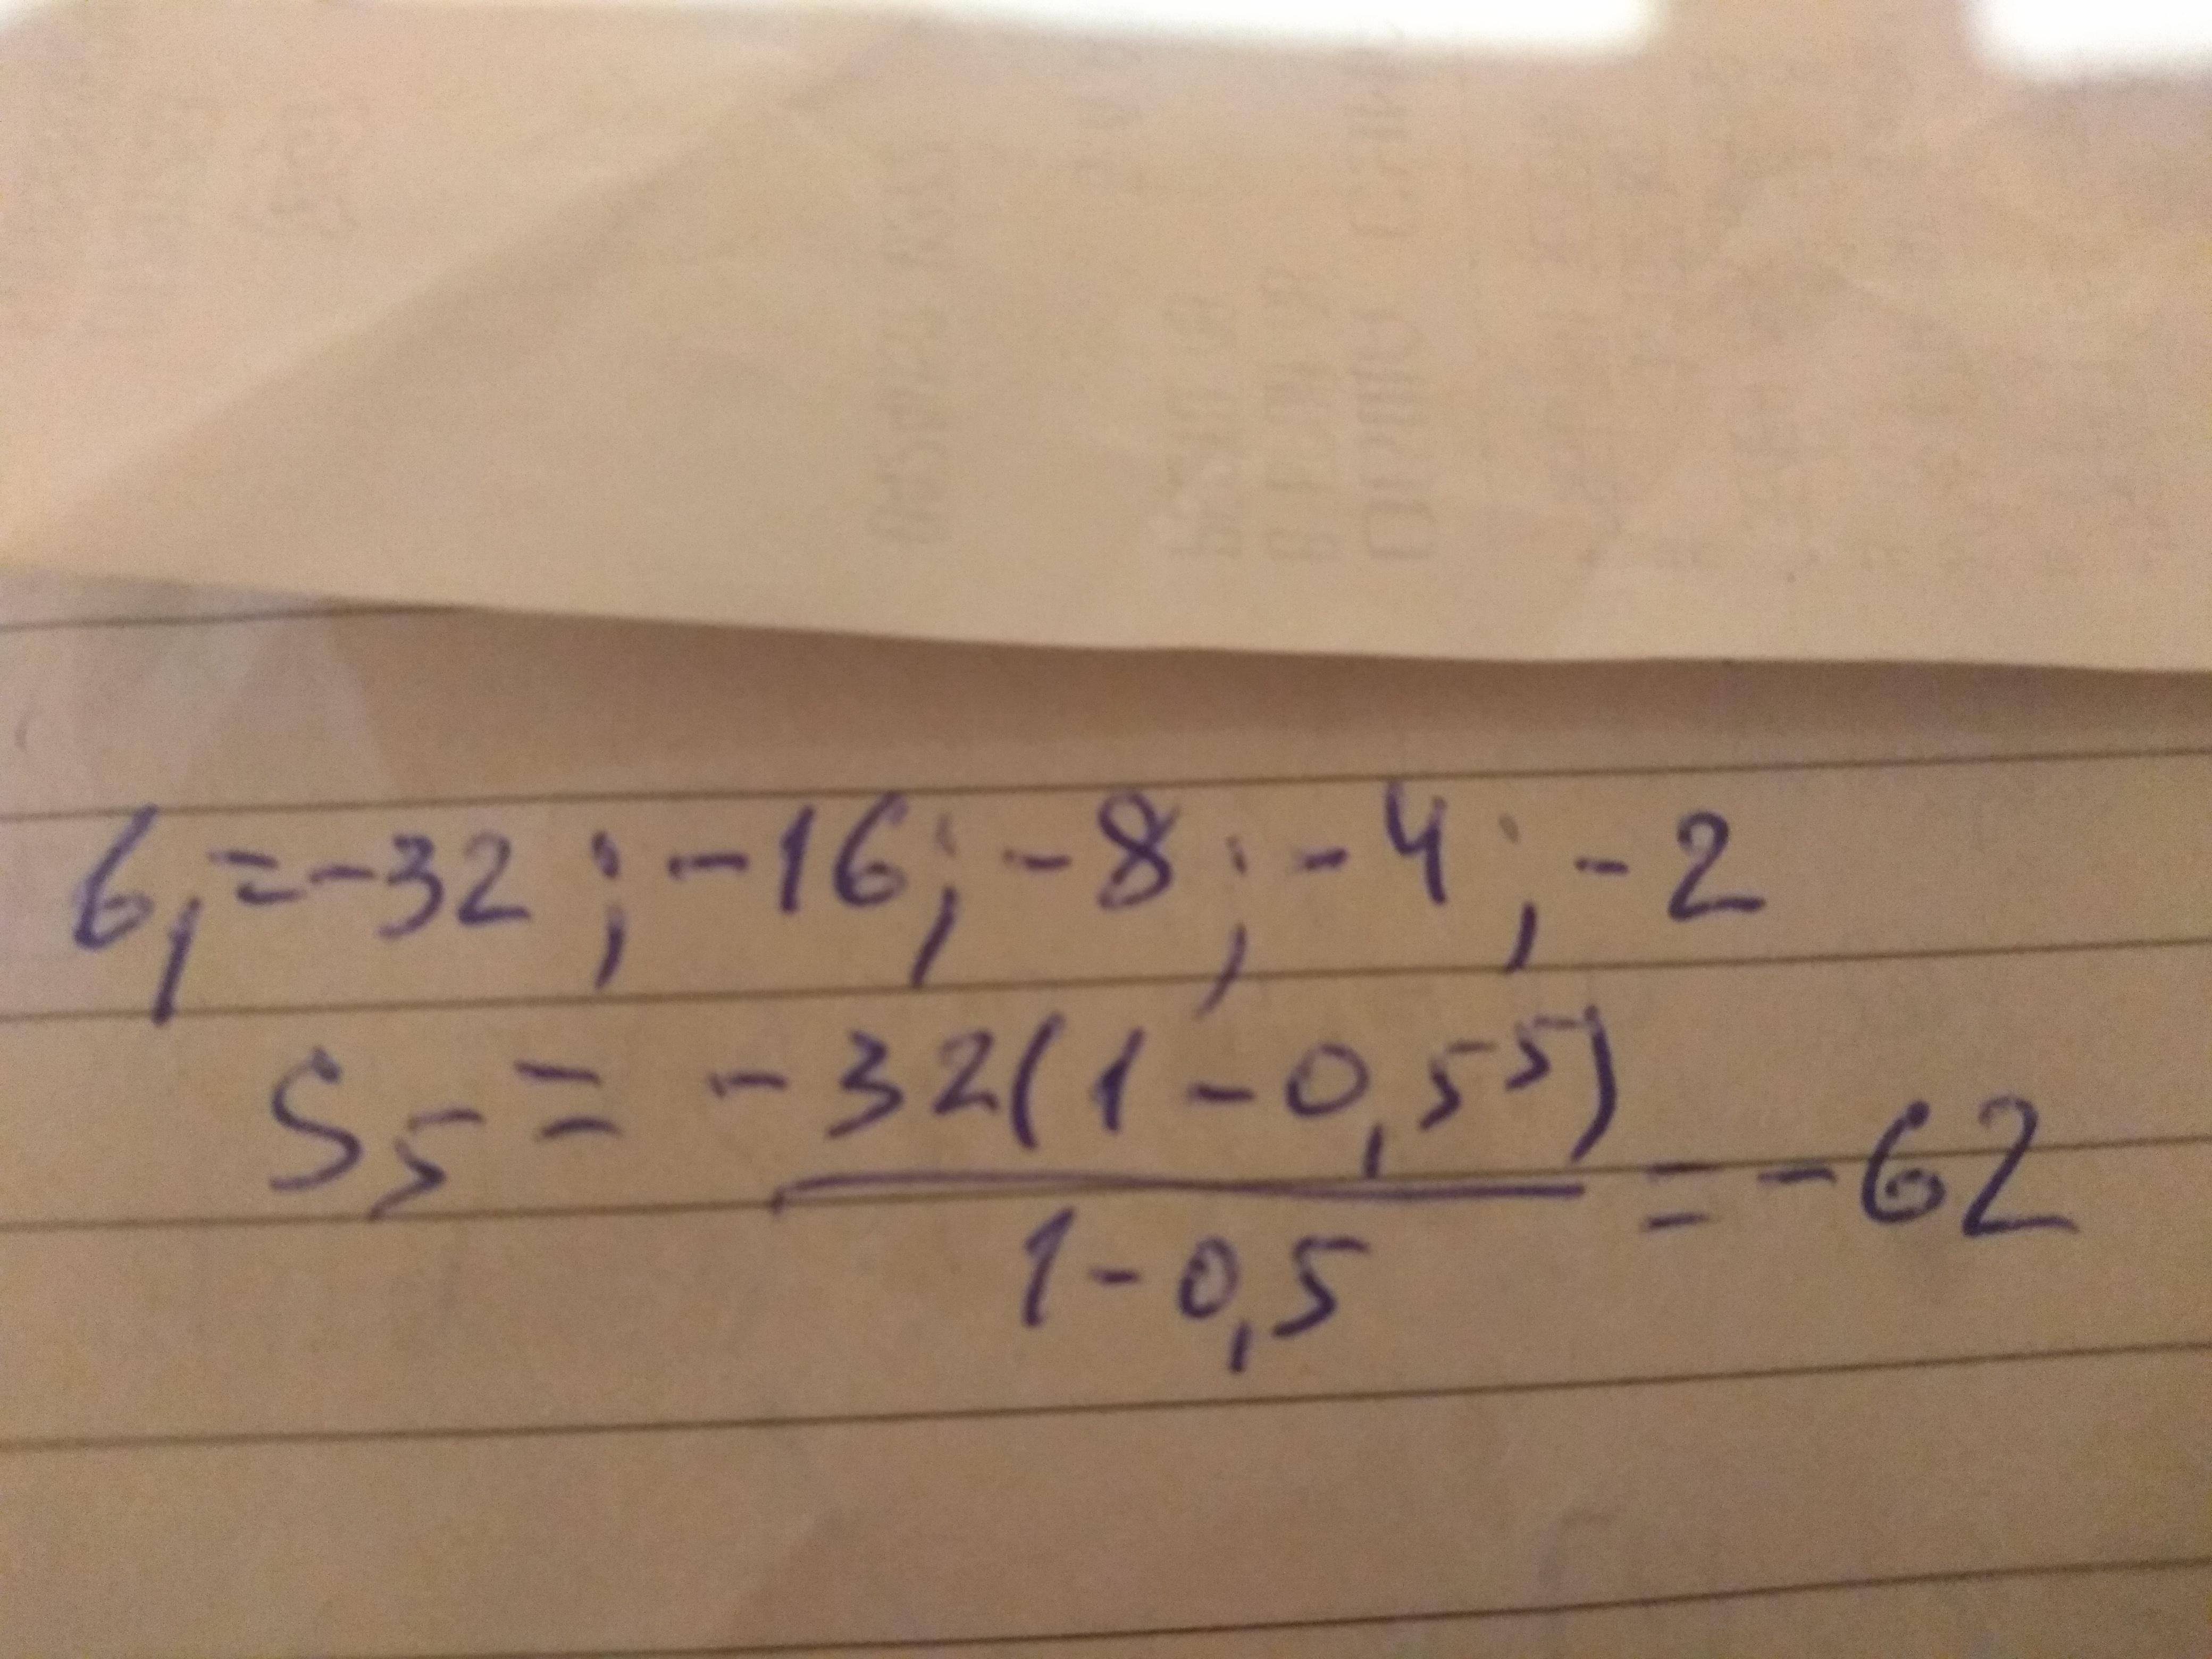 b₁=-32; -16; -8; -4; -2
S₅ = -32(1-0,5⁵) / 1-0,5 = -62